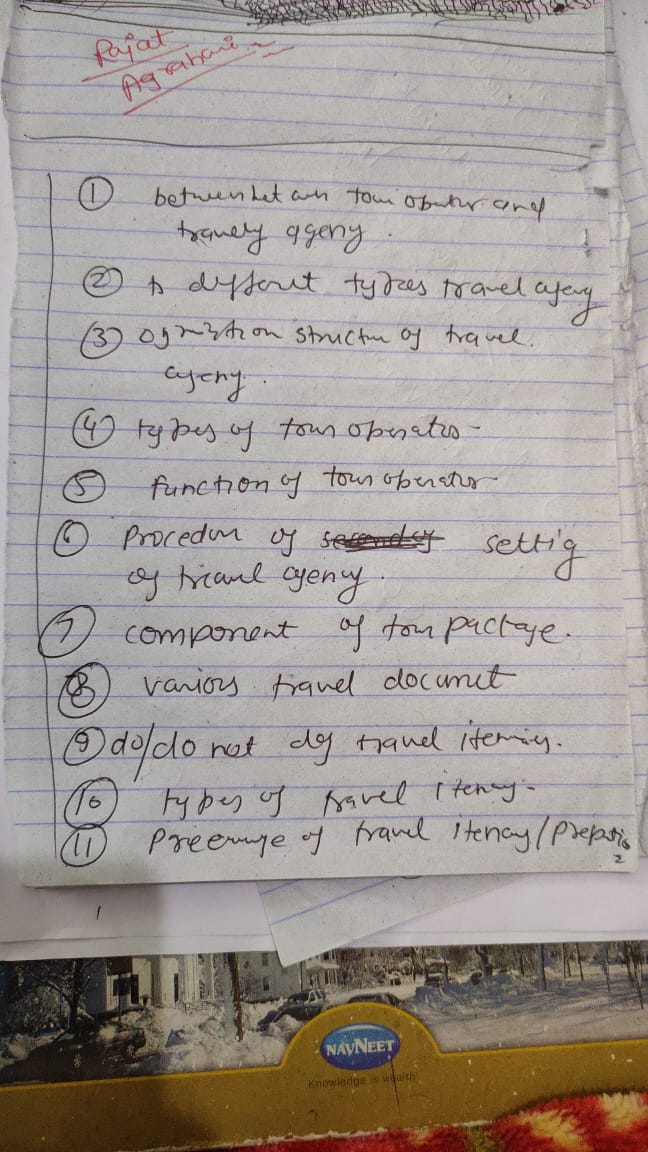 Rajat
Agrahari
① between bet wen tour opertur and
travely ageny.
② to dyfferut types travel ageny
③ ogniztion structu of travel.
ageny.
④ types of tour operator
⑤ function of tour operator
⑥ Procedur of settig
of travel agency.
⑦ component of tour packaye.
⑧ various travel documet
⑨ do/do not of travel itemiy.
⑩ types of travel itenay-
⑪ of travel itenay/Prepatio
2
1
NAVNEET
Knowledge is wealth